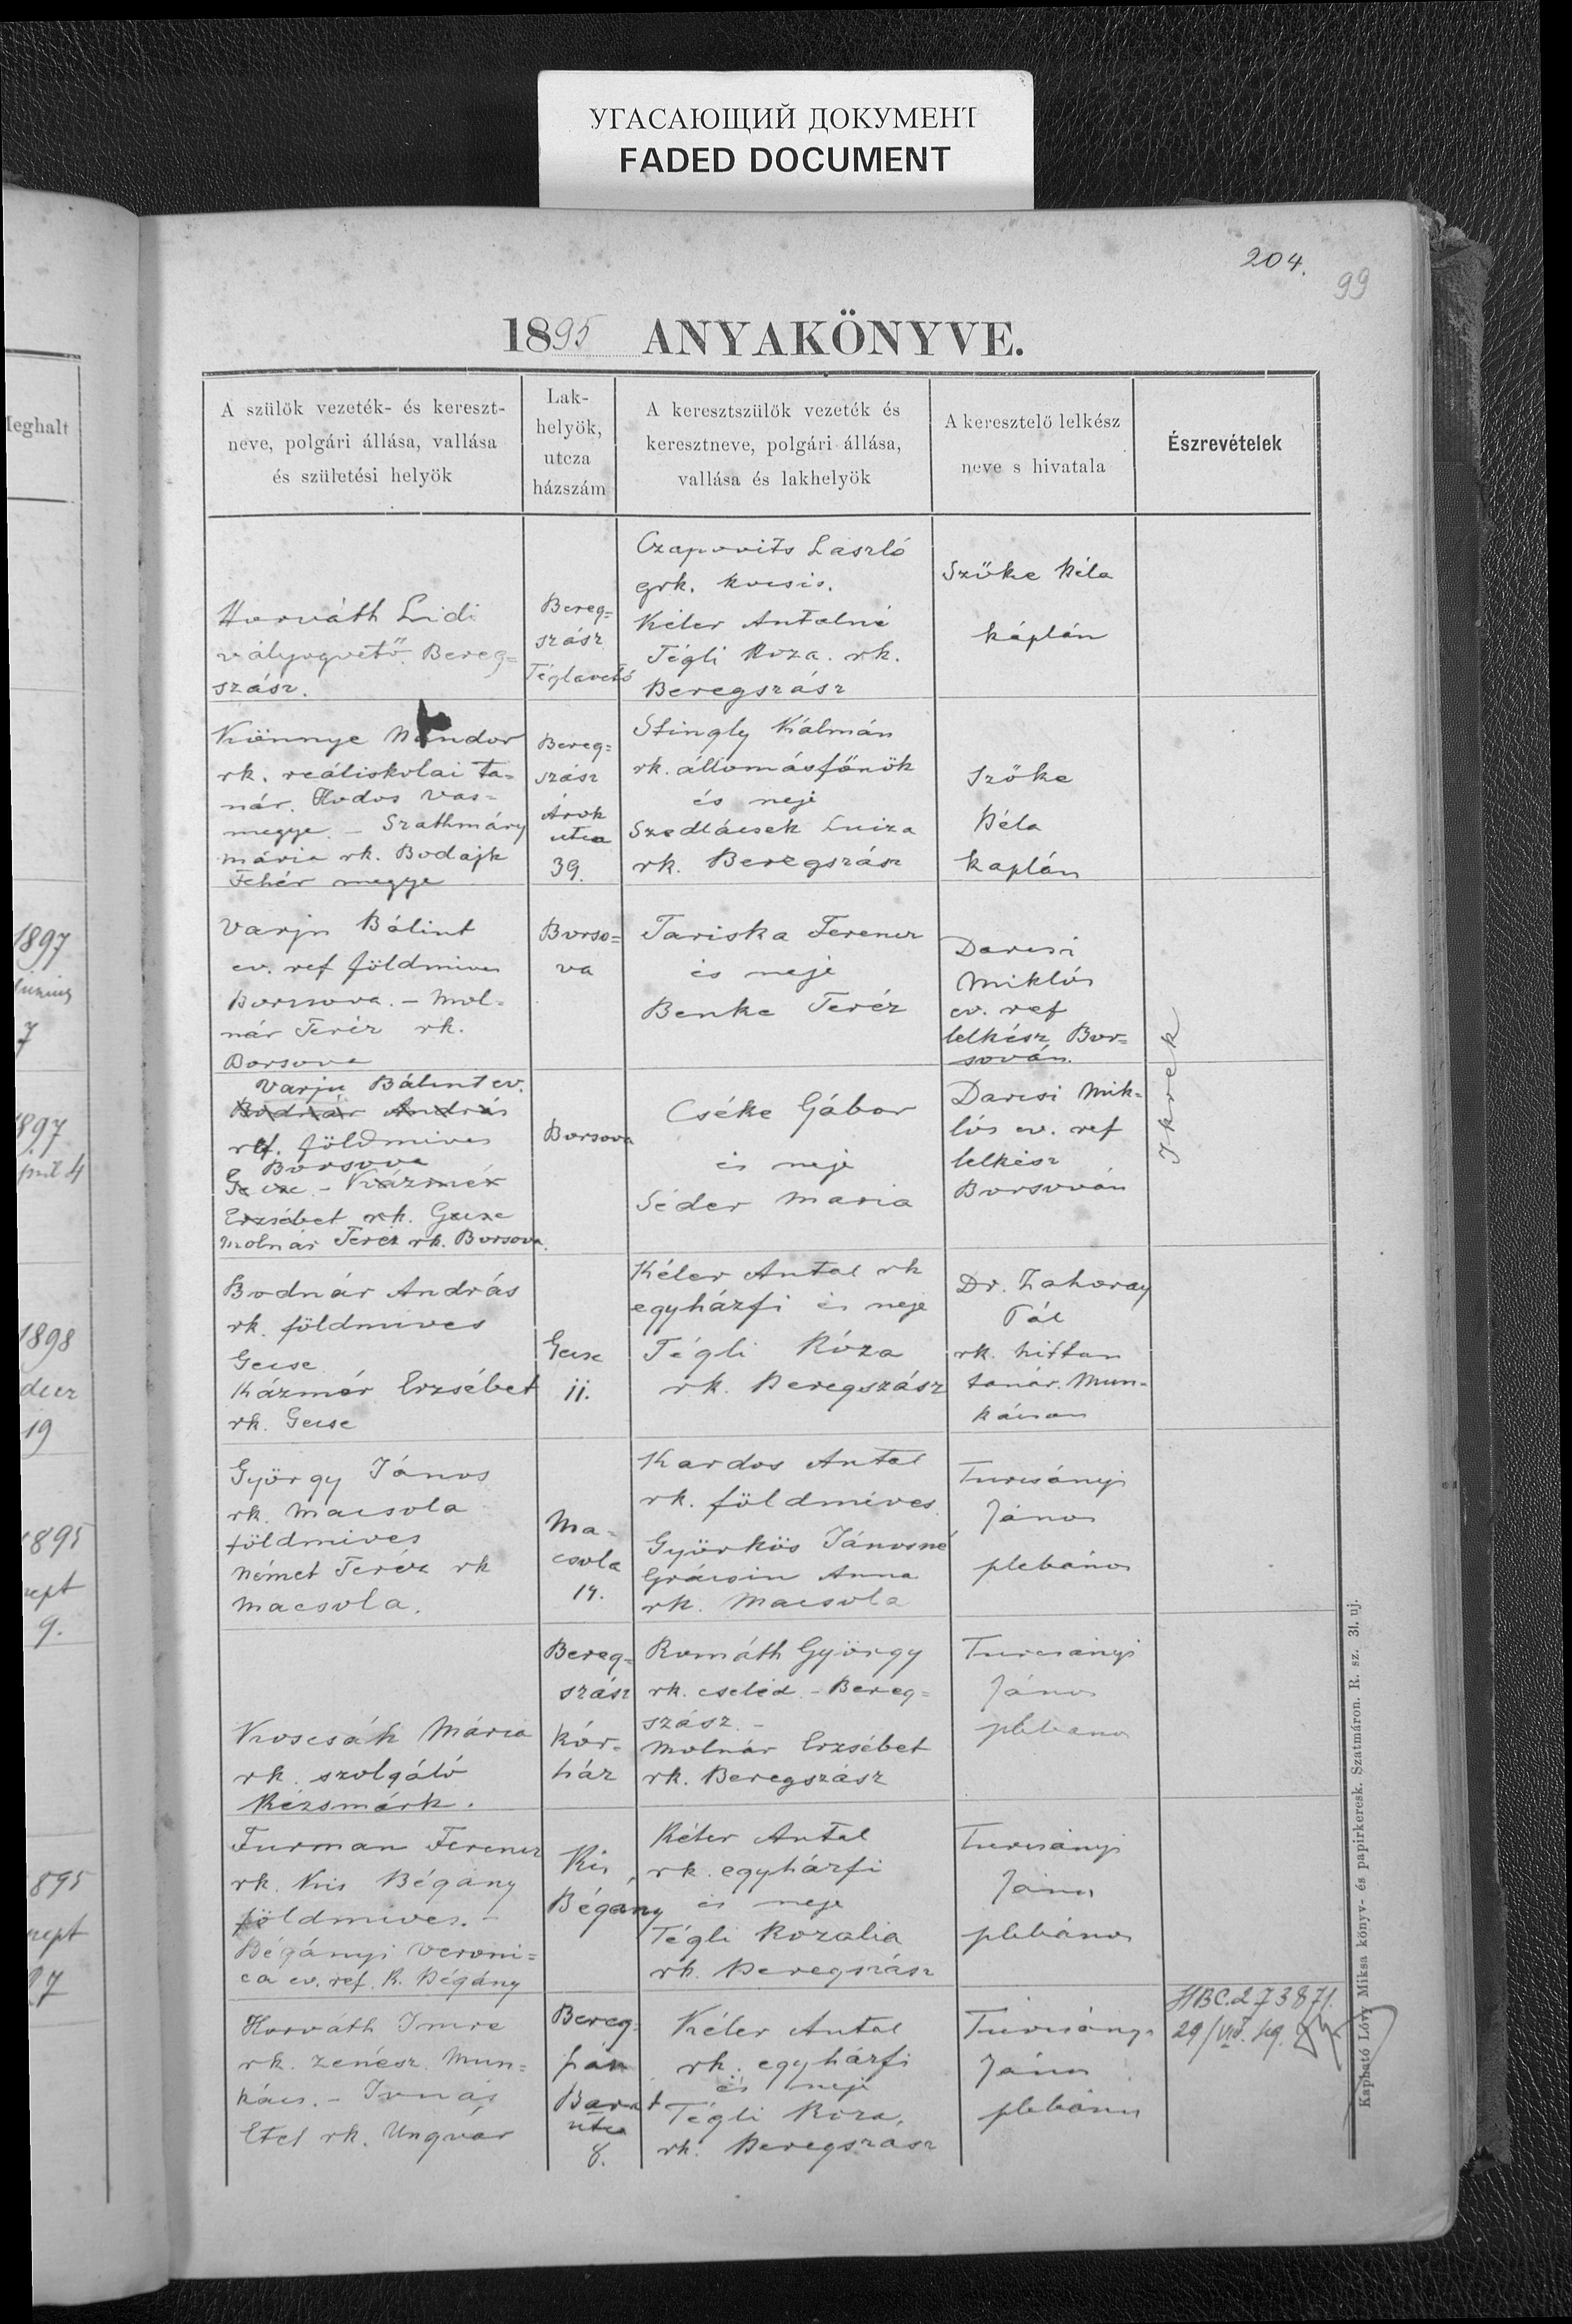 УГАСАЮЩИЙ ДОКУМЕНТ
FADED DOCUMENT
204.
99
1895 ANYAKÖNYVE.
Meghalt
A szülők vezeték- és kereszt-
neve, polgári állása, vallása
és születési helyök
Lak-
helyök,
utcza
házszám
A keresztszülők vezeték és
keresztneve, polgári állása,
vallása és lakhelyök
A keresztelő lelkész
neve s hivatala
Észrevételek
Horváth Lidi
vályogvető. Bereg=
szász.
Bereg=
szász
Téglavető
Czapovits László
grk. kocsis.
Kéler Antalné
Tégli Roza. rk.
Beregszász
Szőke Béla
káplán
Könnye Nándor
rk. reáliskolai ta=
nár. Hodos Vas=
megye. - Szathmáry
mária rk. Bodajk
Fehér megye
Bereg=
szász
Árok
utca
39.
Stingly Kálmán
rk. állomásfőnök
és neje
Szedlácsek Luiza
rk. Beregszász
Szőke
Béla
kaplán
1897
7
Varju Bálint
ev. ref földmives
Borsova. - Mol=
nár Teréz rk.
Borsova
Borso=
va
Tariska Ferencz
és neje
Benke Teréz
Darcsi
Miklós
ev. ref
lelkész Bor=
sován.
Ikrek
1897
4
Varju Bálint ev.
Bodnár András
ref. földmives
Borsova
Gecse - Kázmér
Erzsébet rk. Gecse
Molnár Teréz rk. Borsova.
Borsova
Cséke Gábor
és neje
Séder Maria
Darcsi Mik-
lós ev. ref
lelkész
Borsován
1898
decz
19
Bodnár András
rk. földmives
Gecse
Kázmér Erzsébet
rk. Gecse
Gecse
11.
Kéler Antal rk
egyházfi és neje
Tégli Róza
rk. Beregszász
Dr. Zahoray
Pál
rk. hittan
tanár. Mun-
kácson
1895
sept
9.
György János
rk. Macsola
földmives
Német Teréz rk
Macsola.
Ma-
csola
14.
Kardos Antal
rk. földmíves
Györkös Jánosné
Grácsin Anna
rk. Macsola
Turcsányi
János
plebános
Koscsák Mária
rk. szolgáló
Késmárk.
Bereg=
szász
kór-
ház
Román György
rk. cseléd. - Bereg=
szász. -
Molnár Erzsébet
rk. Beregszász
Turcsányi
János
plebános
1895
sept
27
Furman Ferencz
rk. Kis Bégány
földmives. -
Bégányi Veroni=
ca ev. ref. K. Bégány
Kis
Bégány
Kéler Antal
rk. egyházfi
és neje
Tégli Rozalia
rk. Beregszász
Turcsányi
János
plebános
Horváth Imre
rk. zenész. Mun=
kács. - Jónás
Etel rk. Ungvár
Bereg=
szász
Barát
utca
8.
Kéler Antal
rk. egyházfi
és neje
Tégli Róza.
rk. Beregszász
Turcsányi
János
plebános
HBC.273871.
29/VII.
Kapható Lővy Miksa könyv- és papirkeresk. Szatmáron. R. sz. 31. uj.